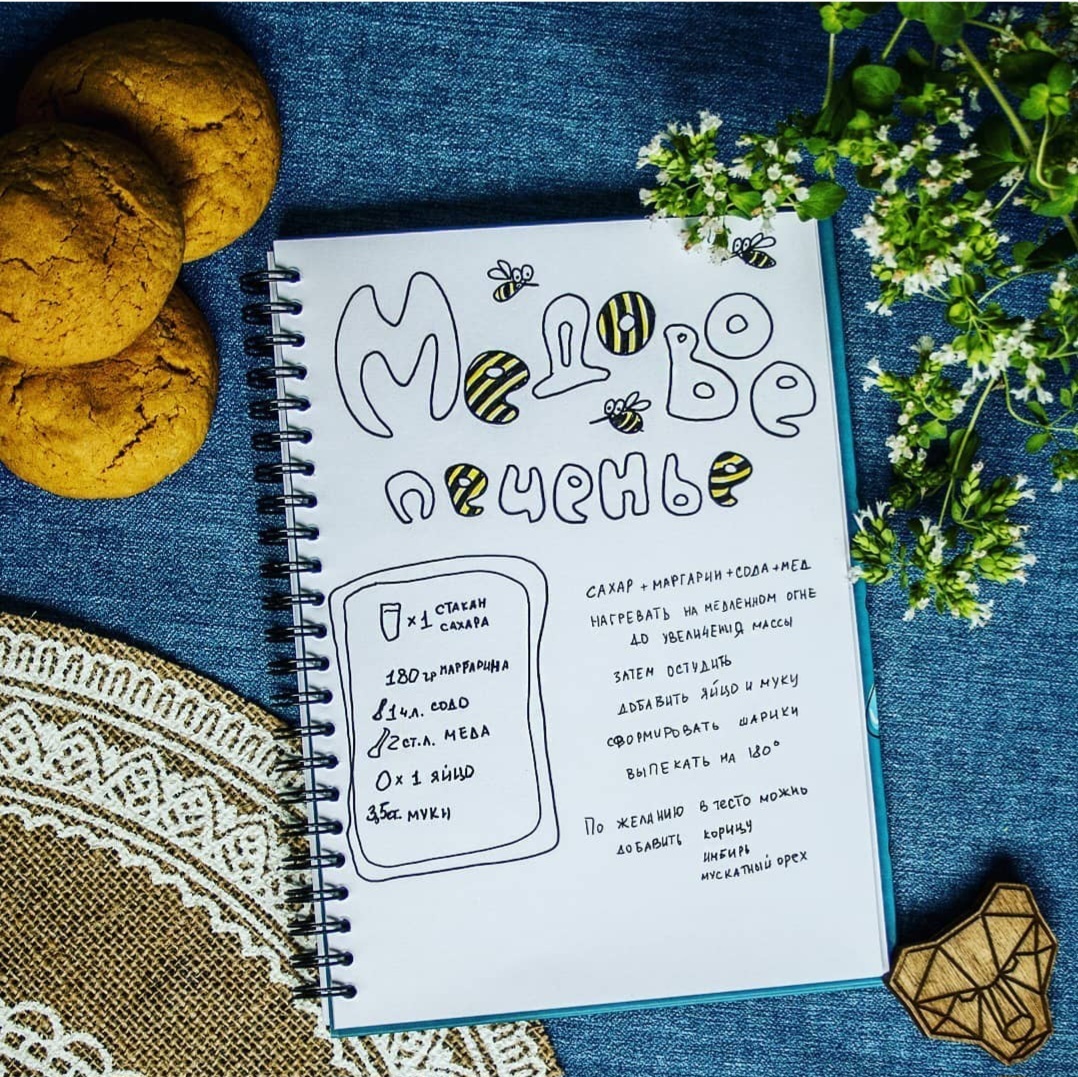 Медовое
печенье
×1 СТАКАН
САХАРА
180 гр МАРГАРИНА
1 ч.л. СОДО
2 ст.л. МЕДА
× 1 ЯЙЦО
3,5 ст. МУКИ
САХАР + МАРГАРИН + СОДА + МЕД
НАГРЕВАТЬ НА МЕДЛЕННОМ ОГНЕ
ДО УВЕЛИЧЕНИЯ МАССЫ
ЗАТЕМ ОСТУДИТЬ
ДОБАВИТЬ ЯЙЦО И МУКУ
СФОРМИРОВАТЬ ШАРИКИ
ВЫПЕКАТЬ НА 180°
По ЖЕЛАНИЮ В ТЕСТО МОЖНО
ДОБАВИТЬ КОРИЦУ
ИМБИРЬ
МУСКАТНЫЙ ОРЕХ